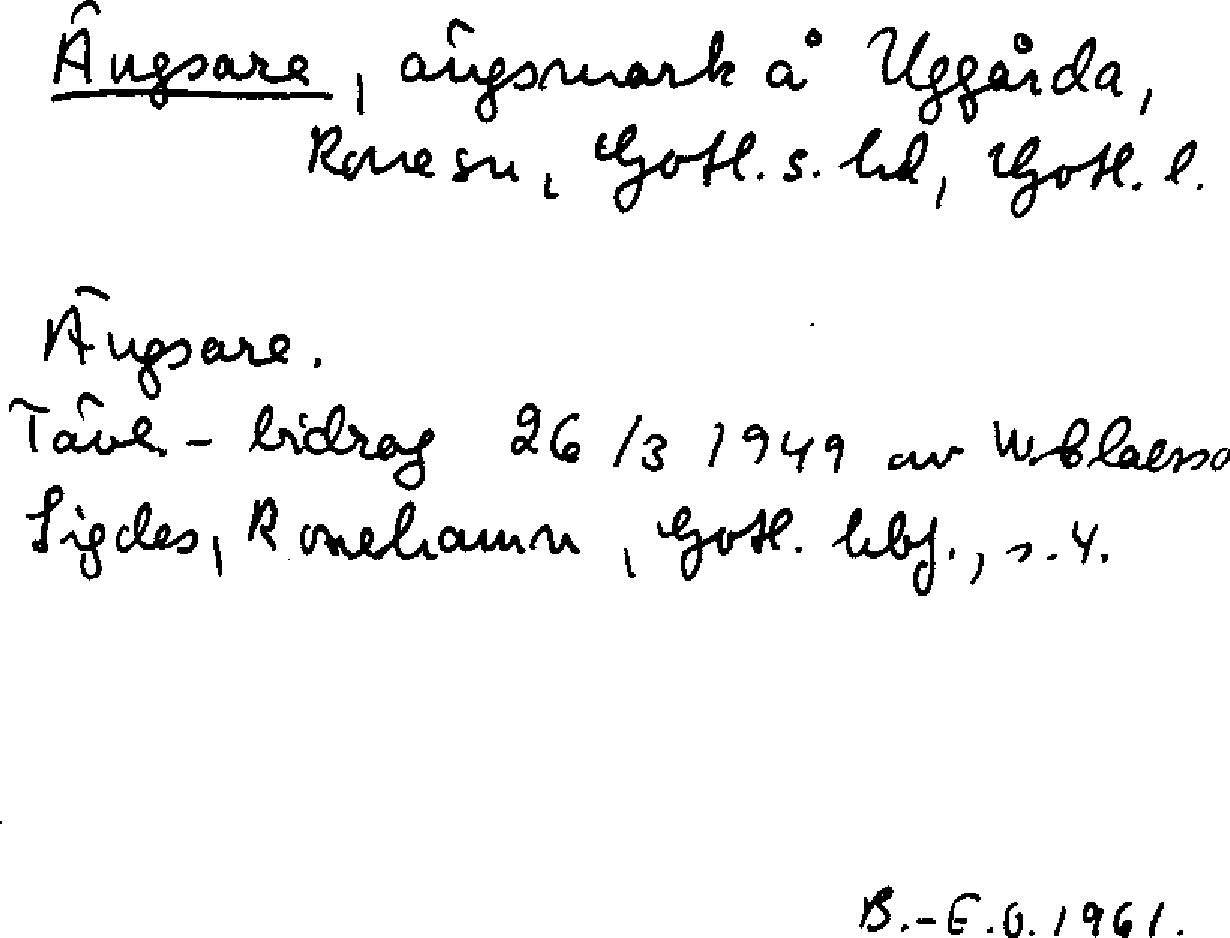 Ängsare, ängsmark å Uggårda,
Rone sn, Gotl. s. hd, Gotl. l.
Ängsare.
Tävl-bidrag 26/3 1949 av W. Claesso
Sigdes, Ronehamn, Gotl. hbf., s. 4.
B.-E.O. 1961.